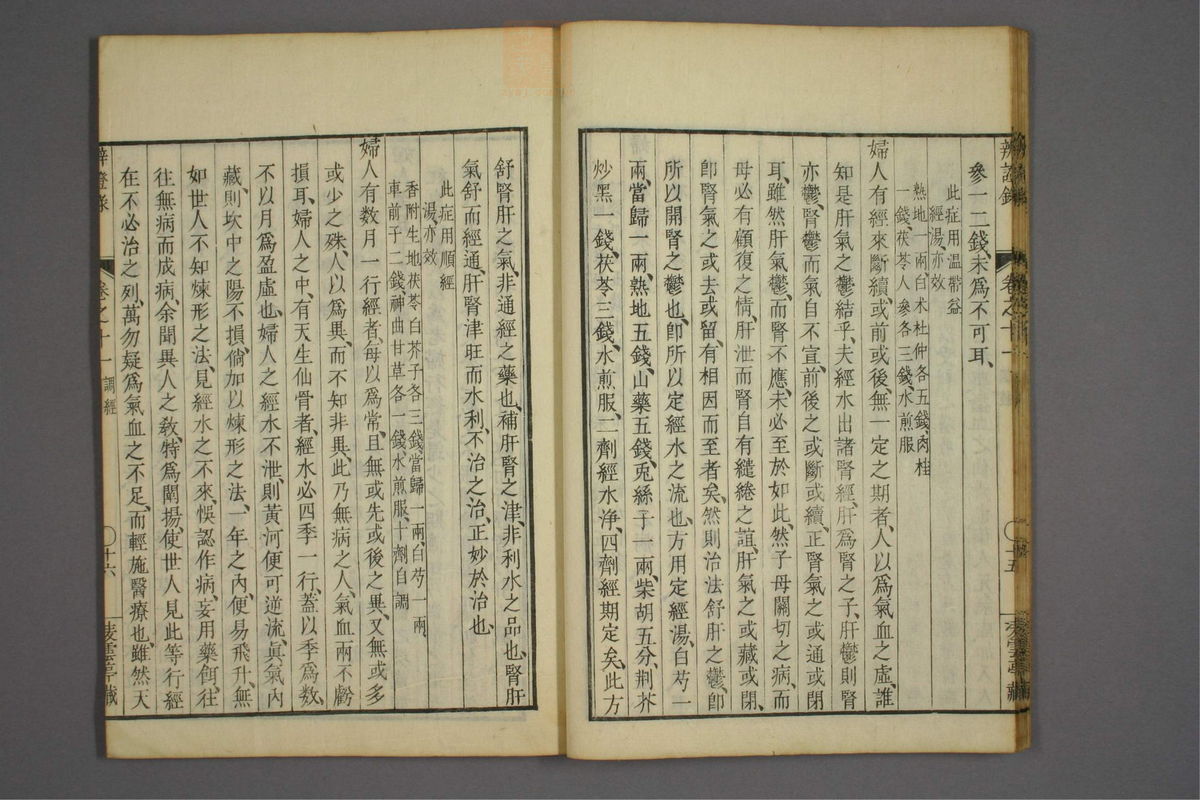 辨證錄 卷之十一 十五 凌雲亭藏
參一二錢、未爲不可耳、
此症用温臍益
經湯亦效
熟地一兩、白朮杜仲各五錢、肉桂
一錢、茯苓人參各三錢、水煎服
婦人有經來斷續、或前或後、無一定之期者、人以爲氣血之虛、誰
知是肝氣之鬱結乎、夫經水出諸腎經、肝爲腎之子、肝鬱則腎
亦鬱、腎鬱而氣自不宣、前後之或斷或續、正腎氣之或通或閉
耳、雖然肝氣鬱、而腎不應、未必至於如此、然子母關切之病、而
母必有顧復之情、肝泄而腎自有繾綣之誼、肝氣之或藏或閉、
卽腎氣之或去或留、有相因而至者矣、然則治法舒肝之鬱、卽
所以開腎之鬱也、卽所以定經水之流也、方用定經湯、白芍一
兩、當歸一兩、熟地五錢、山藥五錢、兎絲子一兩、柴胡五分、荆芥
炒黑一錢、茯苓三錢、水煎服、二劑經水净、四劑經期定矣、此方
舒腎肝之氣、非通經之藥也、補肝腎之津、非利水之品也、腎肝
氣舒而經通、肝腎津旺而水利、不治之治、正妙於治也、
此症用順經
湯亦效
香附生地茯苓白芥子各三錢、當歸一兩、白芍一兩、
車前子二錢、神曲甘草各一錢、水煎服、十劑自調
婦人有数月一行經者、每以爲常、且無或先或後之異、又無或多
或少之殊、人以爲異、而不知非異、此乃無病之人、氣血兩不虧
損耳、婦人之中、有天生仙骨者、經水必四季一行、蓋以季爲数、
不以月爲盈虛也、婦人之經水不泄、則黃河便可逆流、眞氣內
藏、則坎中之陽不損、倘加以煉形之法、一年之內、便易飛升、無
如世人不知煉形之法、見經水之不來、悞認作病、妄用藥餌、往
往無病而成病、余聞異人之敎、特爲闡揚、使世人見此等行經
在不必治之列、萬勿疑爲氣血之不足、而輕施醫療也、雖然天
辨證錄 卷之十一 調經 十六 凌雲亭藏